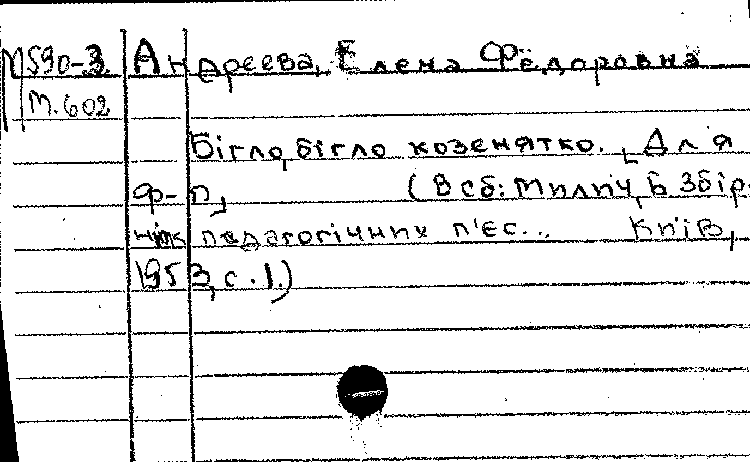 М590-3. Андреева, Елена Фёдоровна
М.602
Бігло, бігло козенятко. Для
ф-п, (В сб: Милич, Б Збір-
ник педагогічних п'єс... Київ,
1953, с.1.)